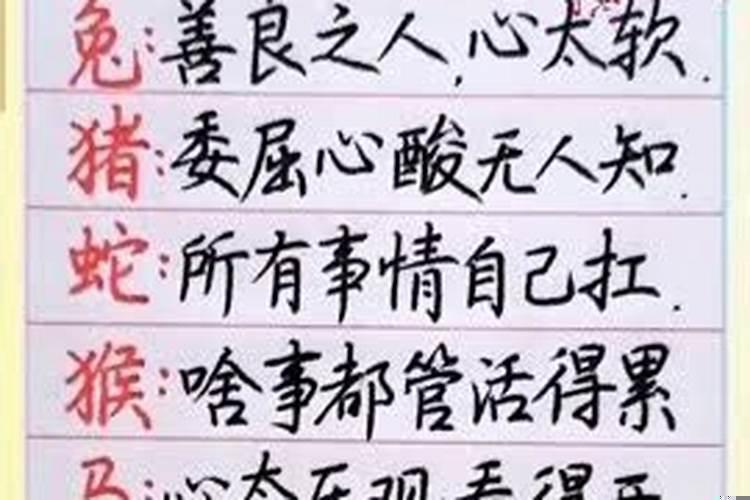 兔:善良之人,心太软.
猪:委屈心酸无人知.
蛇:所有事情自己扛.
猴:啥事都管活得累
马:心太